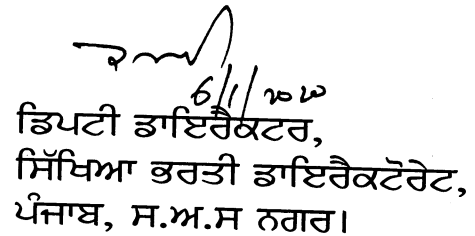 6/1/2020
ਡਿਪਟੀ ਡਾਇਰੈਕਟਰ,
ਸਿੱਖਿਆ ਭਰਤੀ ਡਾਇਰੈਕਟੋਰੇਟ,
ਪੰਜਾਬ, ਸ.ਅ.ਸ ਨਗਰ।